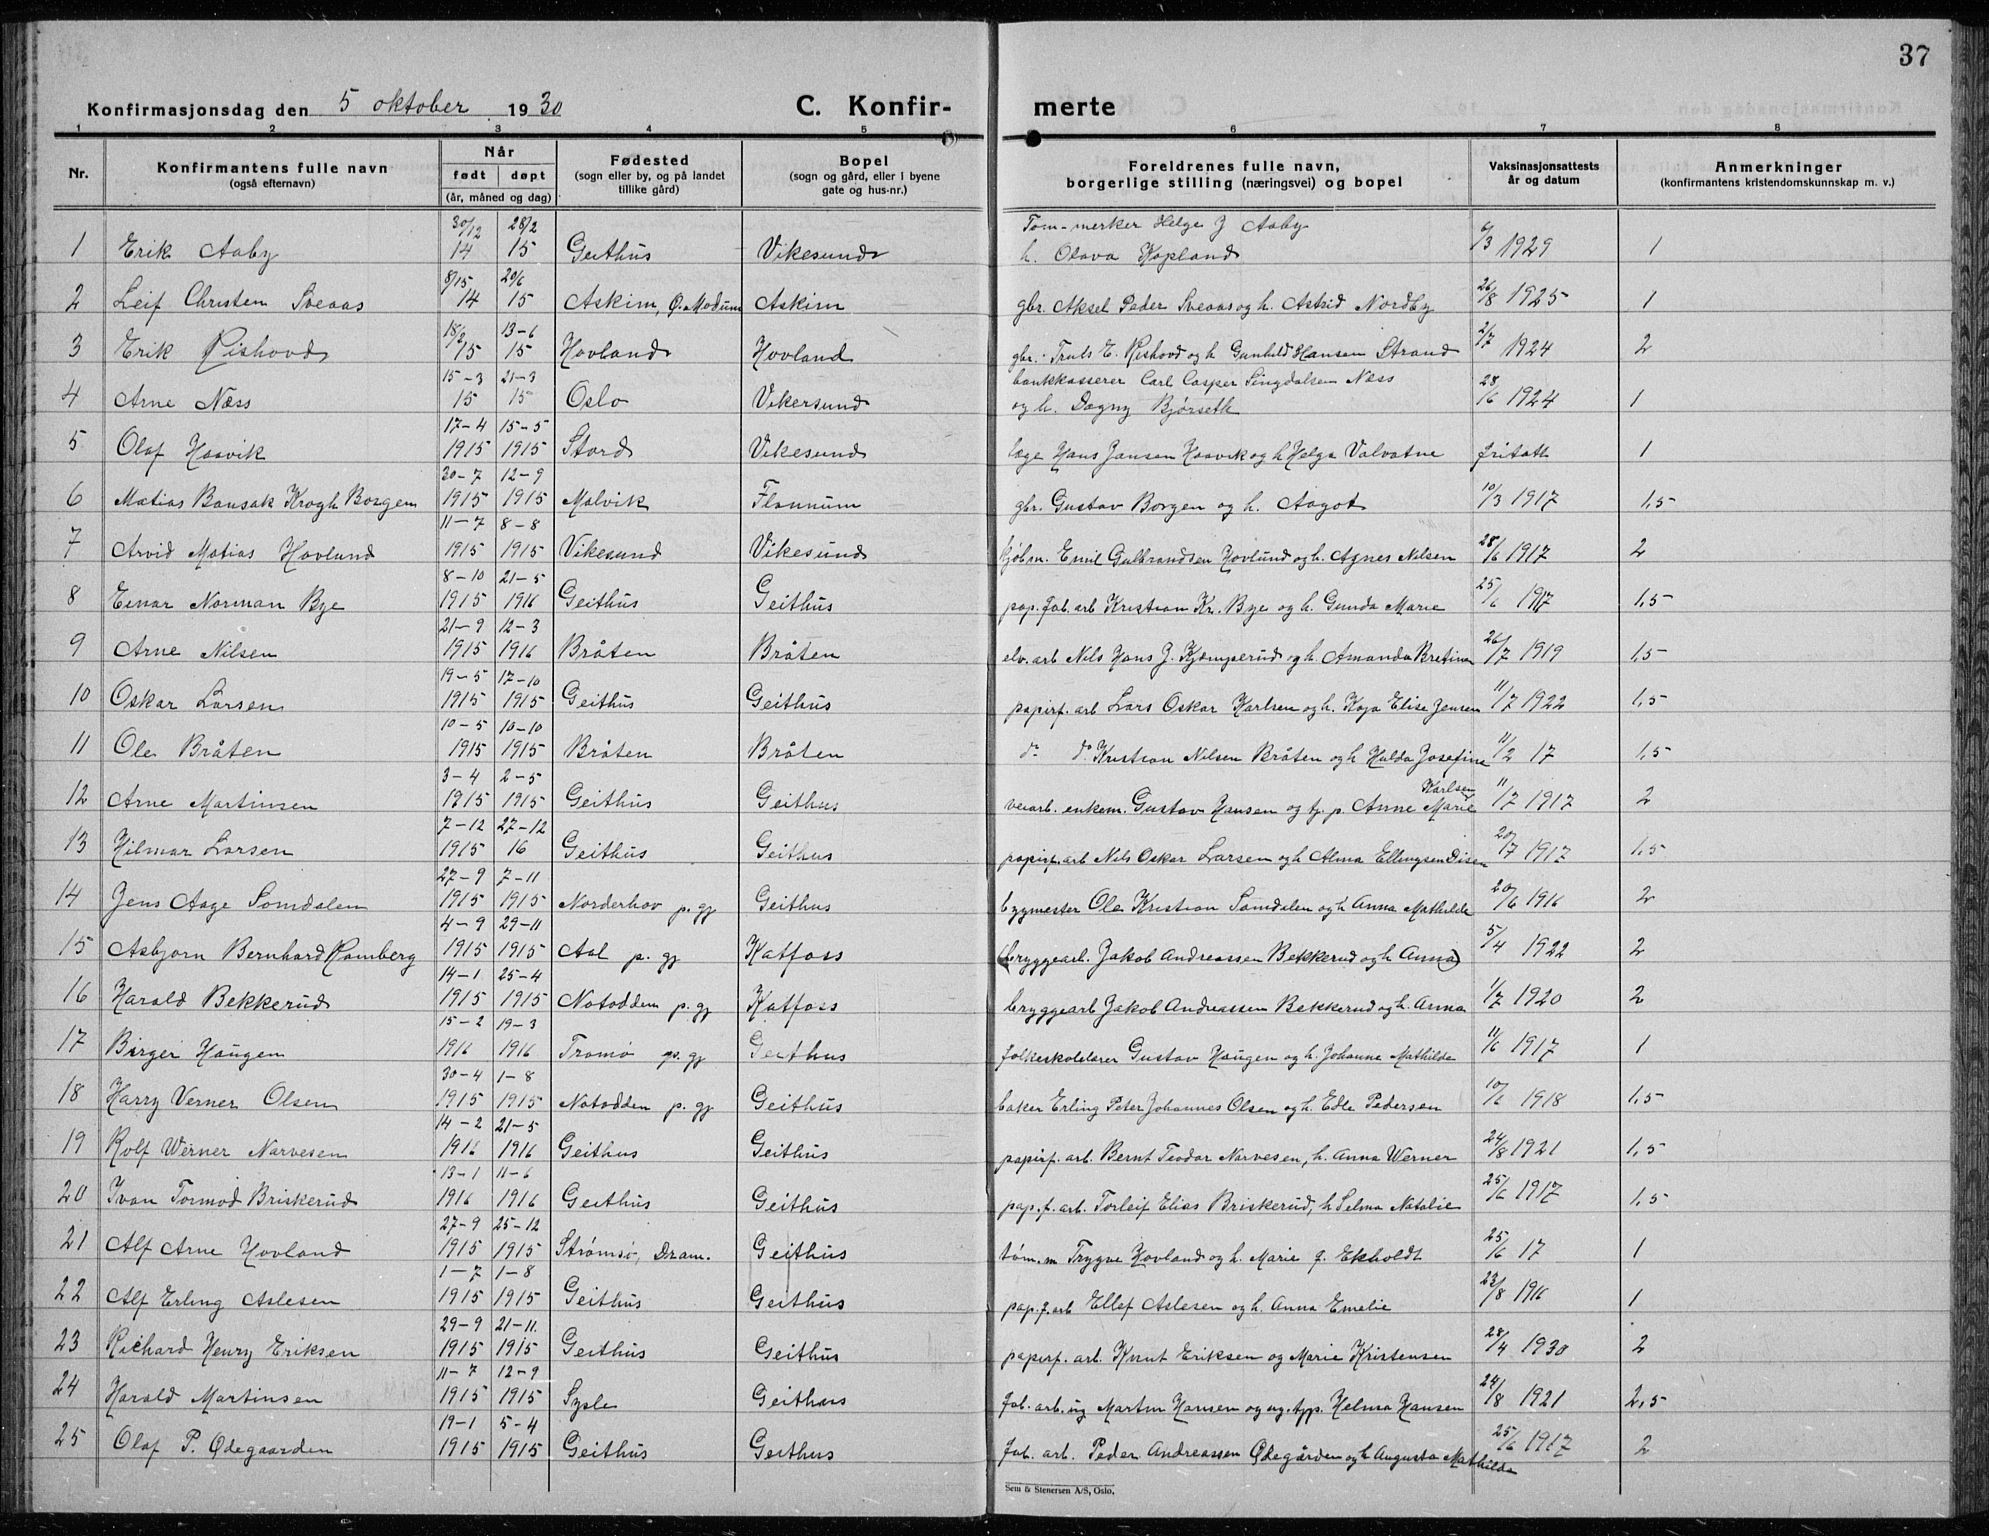 37
Konfirmasjonsdag den 5 oktober 1930 C. Konfir- merte
1 2 3 4 5 6 7 8
Nr. Konfirmantens fulle navn (også efternavn) Når født døpt (år, måned og dag) Fødested (sogn eller by, og på landet tillike gård) Bopel (sogn og gård, eller i byene gate og hus-nr.) Foreldrenes fulle navn, borgerlige stilling (næringsvei) og bopel Vaksinasjonsattests år og datum Anmerkninger (konfirmantens kristendomskunnskap m. v.)
1 Erik Aaby 30/12 14 28/2 15 Geithus Vikesund Tom-merker Helge J Aaby h. Olava Kopland 6/3 1929 1
2 Leif Christen Sveaas 8/15 14 20/6 15 Askim, Ø. Modum Askim gbr. Aksel Peder Sveaas og h. Astrid Nordby 26/8 1925 1
3 Erik Rishovd 18/2 15 13-6 15 Hovland Hovland gbr. Truls E. Rishovd og h Gunhild Hansen Strand 2/7 1924 2
4 Arne Næss 15-3 15 21-3 15 Oslo Vikersund bankkasserer Carl Casper Singdalsen Næss og h. Dagny Bjørseth 28/6 1924 1
5 Olaf Haavik 17-4 1915 15-5 1915 Stord Vikesund læge Hans Jansen Haavik og h Helga Valvatne fritatt 1
6 Matias Bonsak Krogh Borgen 30-7 1915 12-9 1915 Malvik Flannum gbr. Gustav Borgen og h. Aagot 10/3 1917 1,5
7 Arvid Matias Hovlund 11-7 1915 8-8 1915 Vikesund Vikesund kjøbm. Emil Gulbrandsen Hovlund og h. Agnes Nilsen 28/6 1917 2
8 Einar Norman Bye 8-10 1915 21-5 1916 Geithus Geithus pap.fab.arb Kristian Kr. Bye og h. Gunda Marie 25/6 1917 1,5
9 Arne Nilsen 21-9 1915 12-3 1916 Bråten Bråten elv. arb Nils Hans J. Kjæmperud og h. Amanda Kretine 26/7 1919 1,5
10 Oskar Larsen 19-5 1915 17-10 1915 Geithus Geithus papirf. arb Lars Oskar Karlsen og h. Kaja Elise Jensen 11/7 1922 1,5
11 Ole Bråten 10-5 1915 10-10 1915 Bråten Bråten do do Kristian Nilsen Bråten og h Hulda Josefine 11/2 17 1,5
12 Arne Martinsen 3-4 1915 2-5 1915 Geithus Geithus veiarb. enkem. Gustav Hansen og tj. p. Anne Marie Karlsen 11/7 1917 2
13 Hilmar Larsen 7-12 1915 27-12 16 Geithus Geithus papirf. arb Nils Oskar Larsen og h Alma Ellingsen Disen 20/7 1917 1,5
14 Jens Aage Somdalen 27-9 1915 7-11 1915 Norderhov p. gj Geithus bygmester Ole Kristian Somdalen og h Anna Mathilde 20/6 1916 2
15 Asbjørn Bernhard Ramberg 4-9 1915 29-11 1915 Aal p. gj Katfoss (bryggearb. Jakob Andreassen Bekkerud og h Anna) 5/4 1922 2
16 Harald Bekkerud 14-1 1915 25-4 1915 Notodden p. gj Katfoss bryggearb Jakob Andreassen Bekkerud og h. Anna 1/7 1920 2
17 Birger Haugen 15-2 1916 19-3 1916 Tromø p. gj Geithus folkeskolelærer Gustav Haugen og h. Johanne Mathilde 11/6 1917 1
18 Harry Verner Olsen 30-4 1915 1-8 1915 Notodden p. gj Geithus baker Erling Peter Johannes Olsen og h. Edle Pedersen 10/6 1918 1,5
19 Rolf Werner Narvesen 14-2 1916 21-5 1916 Geithus Geithus papirf. arb. Bernt Teodor Narvesen, h. Anna Werner 24/8 1921 1,5
20 Ivan Tormod Briskerud 13-1 1916 11-6 1916 Geithus Geithus pap. f. arb. Torleif Elias Briskerud, h Selma Natalie 25/6 1917 1,5
21 Alf Arne Hovland 27-9 1915 25-12 1915 Strømsø, Dram. Geithus tøm. m Trygve Hovland og h. Marie f. Ekholdt 25/6 17 1
22 Alf Erling Aslesen 1-7 1915 1-8 1915 Geithus Geithus pap. f. arb Ellef Aslesen og h. Anna Emelie 23/8 1916 1
23 Richard Henry Eriksen 29-9 1915 21-11. 1915 Geithus Geithus papirf. arb. Knut Eriksen og Marie Kristensen 28/4 1930 2
24 Harald Martinsen 11-7 1915 12-9 1915 Sysle Geithus fab. arb. ug Martin Hansen og ug. tpp. Helma Hansen 24/8 1921 2,5
25 Olaf P. Ødegaarden 19-1 1915 5-4 1915 Geithus Geithus fab. arb. Peder Andreassen Ødegården og h Augusta Mathilde 25/6 1917 2
Sem & Stenersen A/S, Oslo.